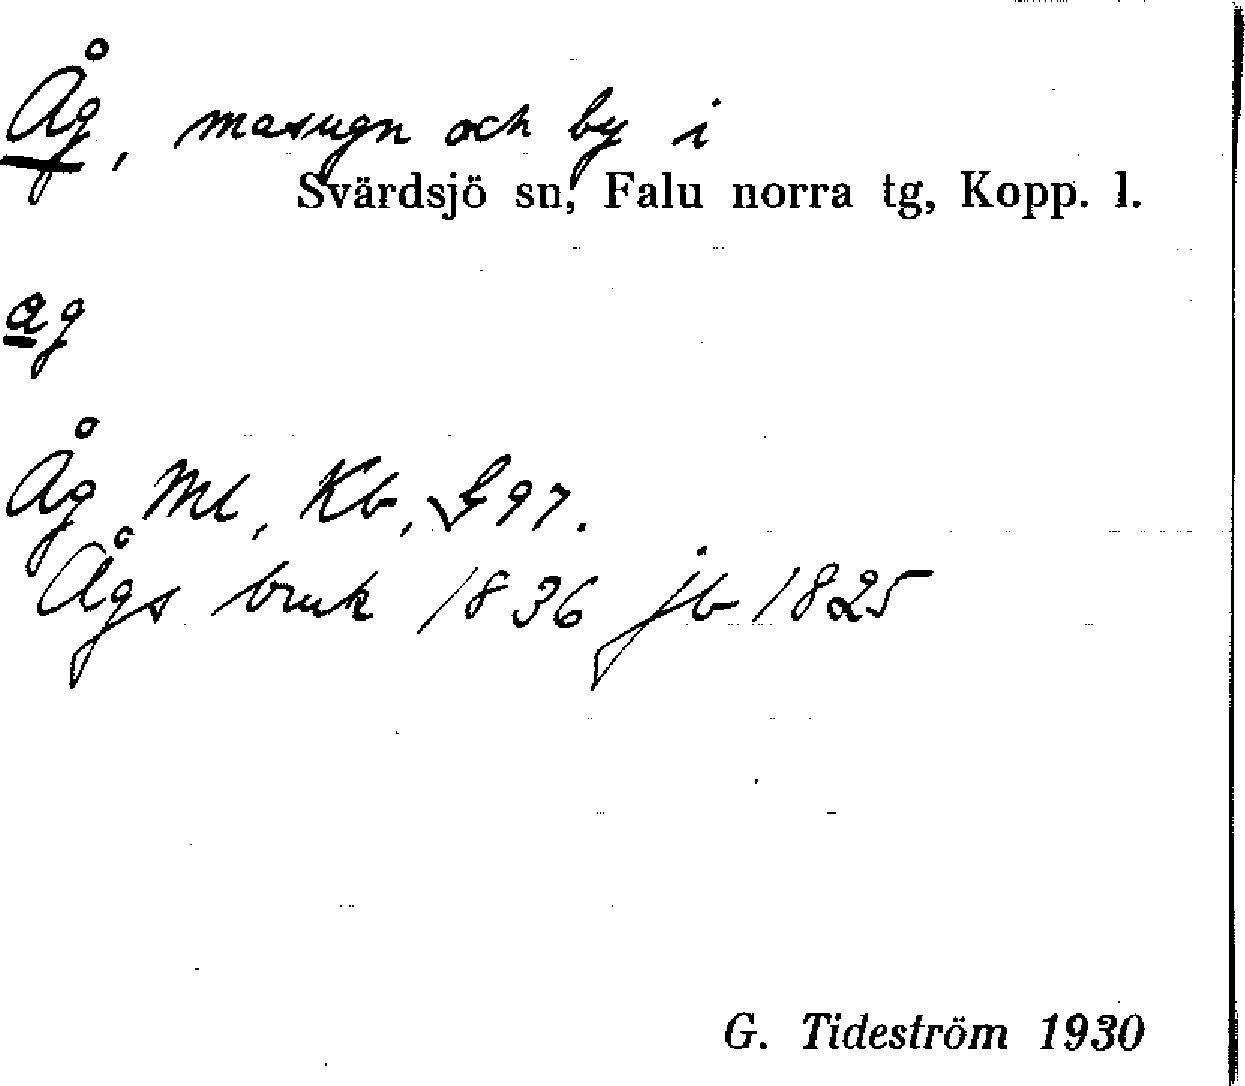 Åg, masugn och by i
Svärdsjö sn, Falu norra tg, Kopp. l.
ag
Åg Ml, Kb, G97.
Ågs bruk 1836 jb 1825
G. Tideström 1930